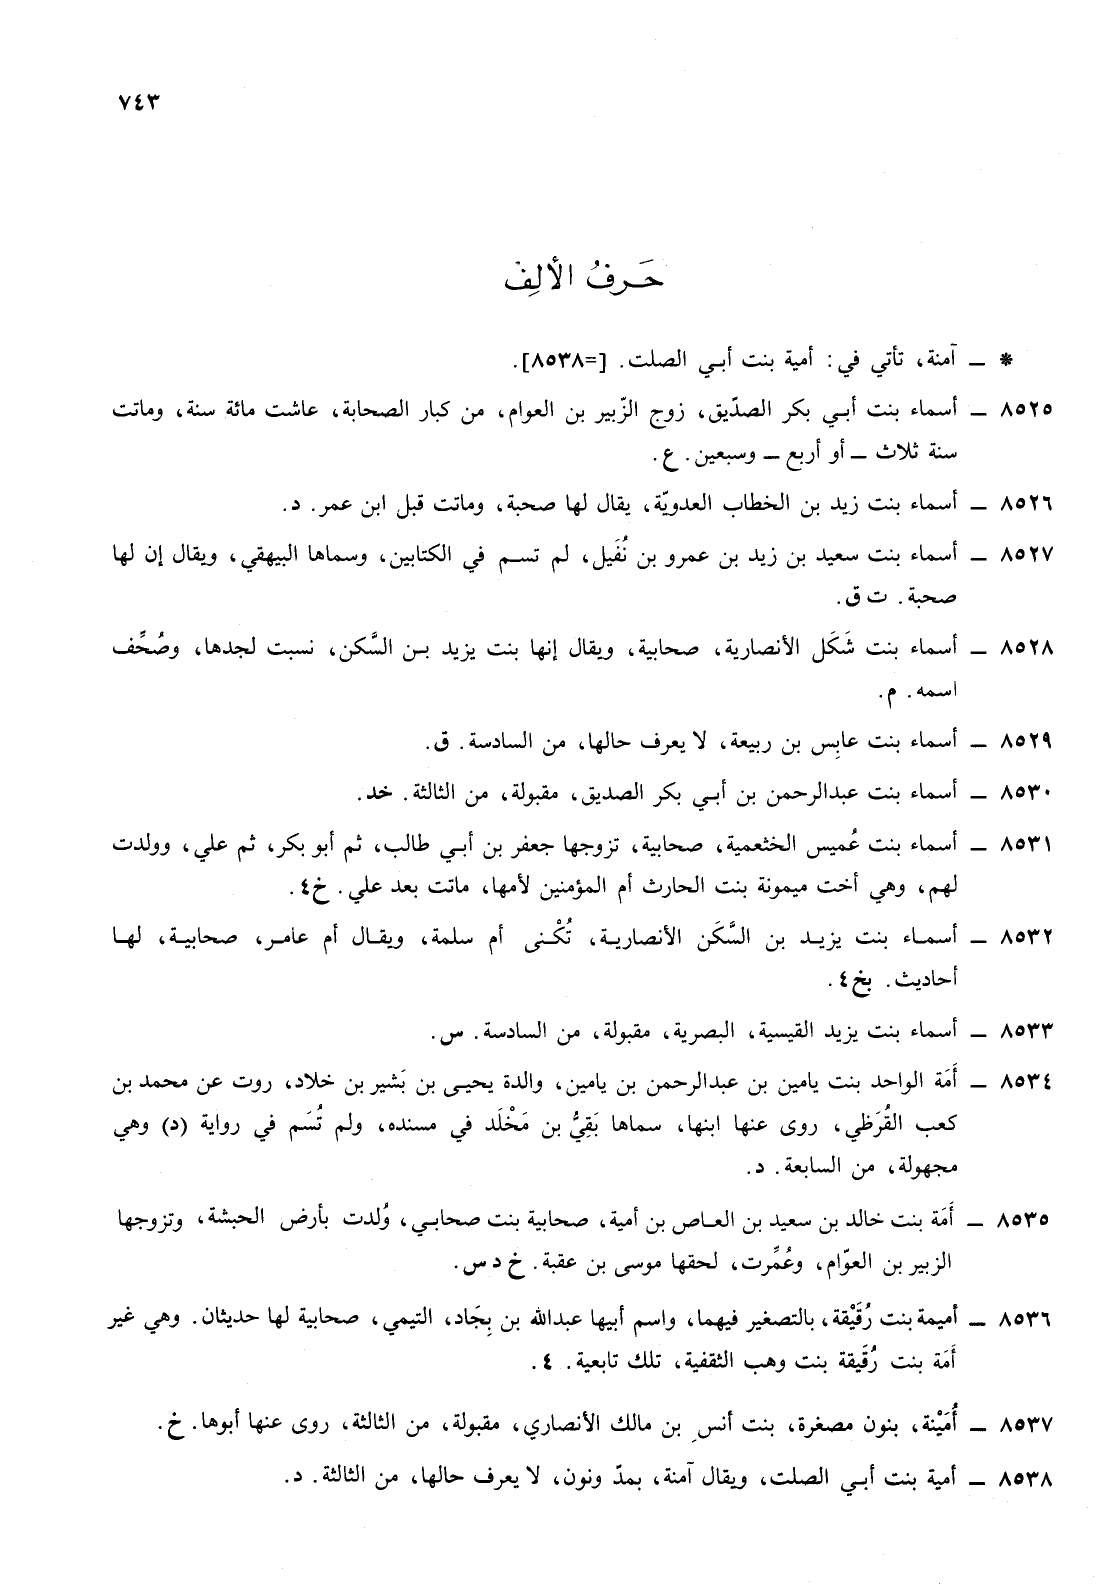 ٧٤٣
حَرفُ الألِفْ
* ــ آمنة، تأتي في: أمية بنت أبي الصلت. [=٨٥٣٨].
٨٥٢٥ ــ أسماء بنت أبي بكر الصدّيق، زوج الزّبير بن العوام، من كبار الصحابة، عاشت مائة سنة، وماتت
سنة ثلاث ــ أو أربع ــ وسبعين. ع.
٨٥٢٦ ــ أسماء بنت زيد بن الخطاب العدويّة، يقال لها صحبة، وماتت قبل ابن عمر. د.
٨٥٢٧ ــ أسماء بنت سعيد بن زيد بن عمرو بن نُفَيل، لم تسم في الكتابين، وسماها البيهقي، ويقال إن لها
صحبة. ت ق.
٨٥٢٨ ــ أسماء بنت شَكَل الأنصارية، صحابية، ويقال إنها بنت يزيد بن السَّكن، نسبت لجدها، وصُحِّف
اسمه. م.
٨٥٢٩ ــ أسماء بنت عابِس بن ربيعة، لا يعرف حالها، من السادسة. ق.
٨٥٣٠ ــ أسماء بنت عبدالرحمن بن أبي بكر الصديق، مقبولة، من الثالثة. خد.
٨٥٣١ ــ أسماء بنت عُميس الخثعمية، صحابية، تزوجها جعفر بن أبي طالب، ثم أبو بكر، ثم علي، وولدت
لهم، وهي أخت ميمونة بنت الحارث أم المؤمنين لأمها، ماتت بعد علي. خ٤.
٨٥٣٢ ــ أسماء بنت يزيد بن السَّكَن الأنصارية، تُكْنى أم سلمة، ويقال أم عامر، صحابية، لها
أحاديث. بخ٤.
٨٥٣٣ ــ أسماء بنت يزيد القيسية، البصرية، مقبولة، من السادسة. س.
٨٥٣٤ ــ أَمَة الواحد بنت يامين بن عبدالرحمن بن يامين، والدة يحيى بن بَشير بن خلاد، روت عن محمد بن
كعب القُرَظي، روى عنها ابنها، سماها بَقِيُّ بن مَخْلَد في مسنده، ولم تُسَم في رواية (د) وهي
مجهولة، من السابعة. د.
٨٥٣٥ ــ أَمَة بنت خالد بن سعيد بن العاص بن أمية، صحابية بنت صحابي، وُلدت بأرض الحبشة، وتزوجها
الزبير بن العوّام، وعُمِّرت، لحقها موسى بن عقبة. خ د س.
٨٥٣٦ ــ أميمة بنت رُقَيْقة، بالتصغير فيهما، واسم أبيها عبدالله بن بِجَاد، التيمي، صحابية لها حديثان. وهي غير
أَمَة بنت رُقَيقة بنت وهب الثقفية، تلك تابعية. ٤.
٨٥٣٧ ــ أُمَيْنة، بنون مصغرة، بنت أنس بن مالك الأنصاري، مقبولة، من الثالثة، روى عنها أبوها. خ.
٨٥٣٨ ــ أمية بنت أبي الصلت، ويقال آمنة، بمدّ ونون، لا يعرف حالها، من الثالثة. د.